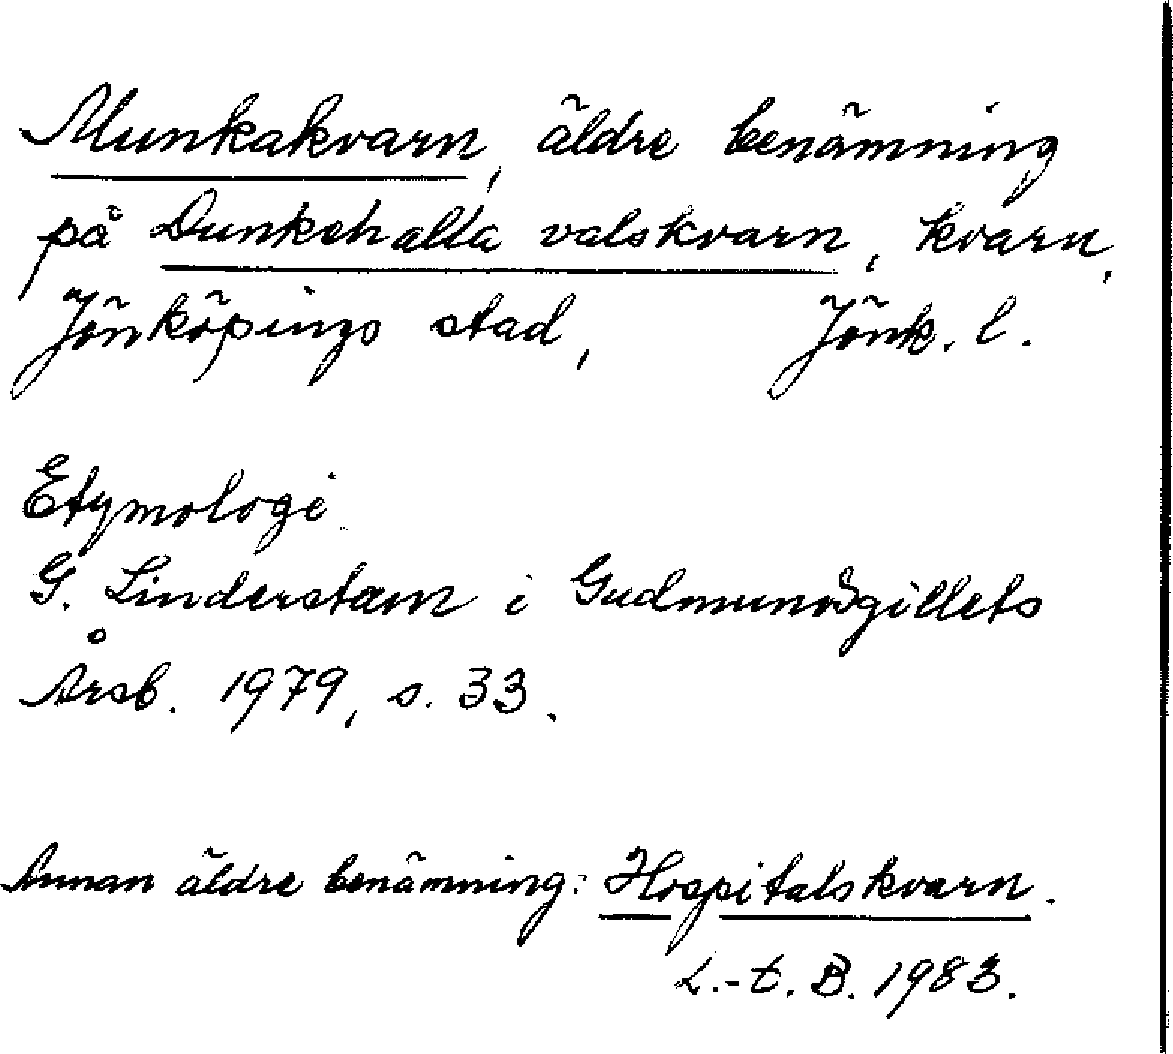 Munkakvarn, äldre benämning
på Dunkehalla valskvarn, kvarn,
Jönköpings stad, Jönk. l.
Etymologi
G. Linderstam i Gudmundsgillets
Årsb. 1979, s. 33.
Annan äldre benämning: Hospitalskvarn.
L.-t. B. 1983.